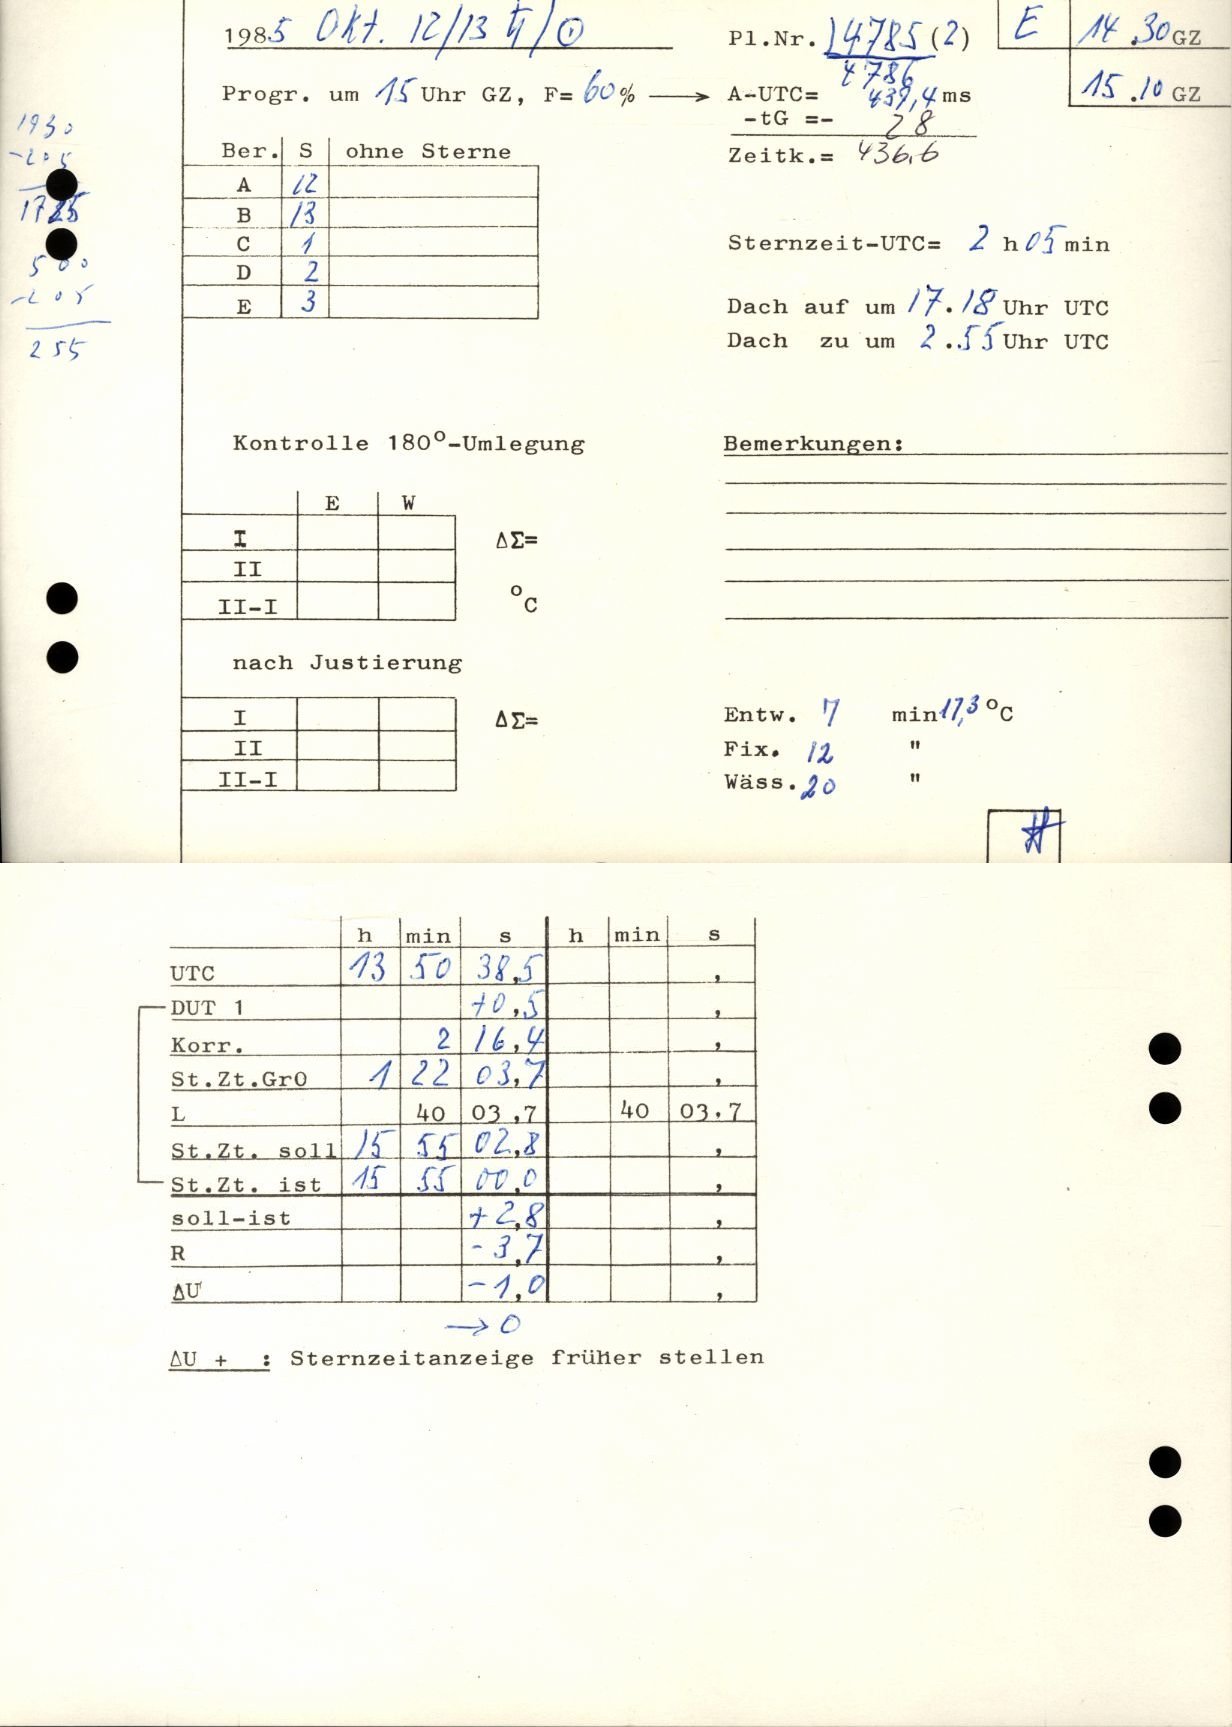 1985 Okt. 12/13 ♄/☉ Pl.Nr. 14785 (2) E 14.30 GZ
4786
Progr. um 15 Uhr GZ, F= 60 % → A-UTC= 439,4 ms 15.10 GZ
-tG =- 28
Zeitk.= 436,6
1930
-205
1725
500
-205
255
Ber. S ohne Sterne
A 12
B 13
C 1
D 2
E 3
Sternzeit-UTC= 2 h 05 min
Dach auf um 17.18 Uhr UTC
Dach zu um 2.55 Uhr UTC
Kontrolle 180°-Umlegung
Bemerkungen:
E W
I ΔΣ=
II
II-I °C
nach Justierung
I ΔΣ=
II
II-I
Entw. 7 min 17,3 °C
Fix. 12 "
Wäss. 20 "
h min s h min s
UTC 13 50 38,5 ,
DUT 1 +0,5 ,
Korr. 2 16,4 ,
St.Zt.Gr0 1 22 03,7 ,
L 40 03,7 40 03,7
St.Zt. soll 15 55 02,8 ,
St.Zt. ist 15 55 00,0 ,
soll-ist +2,8 ,
R -3,7 ,
ΔU -1,0 ,
→ 0
ΔU + : Sternzeitanzeige früher stellen